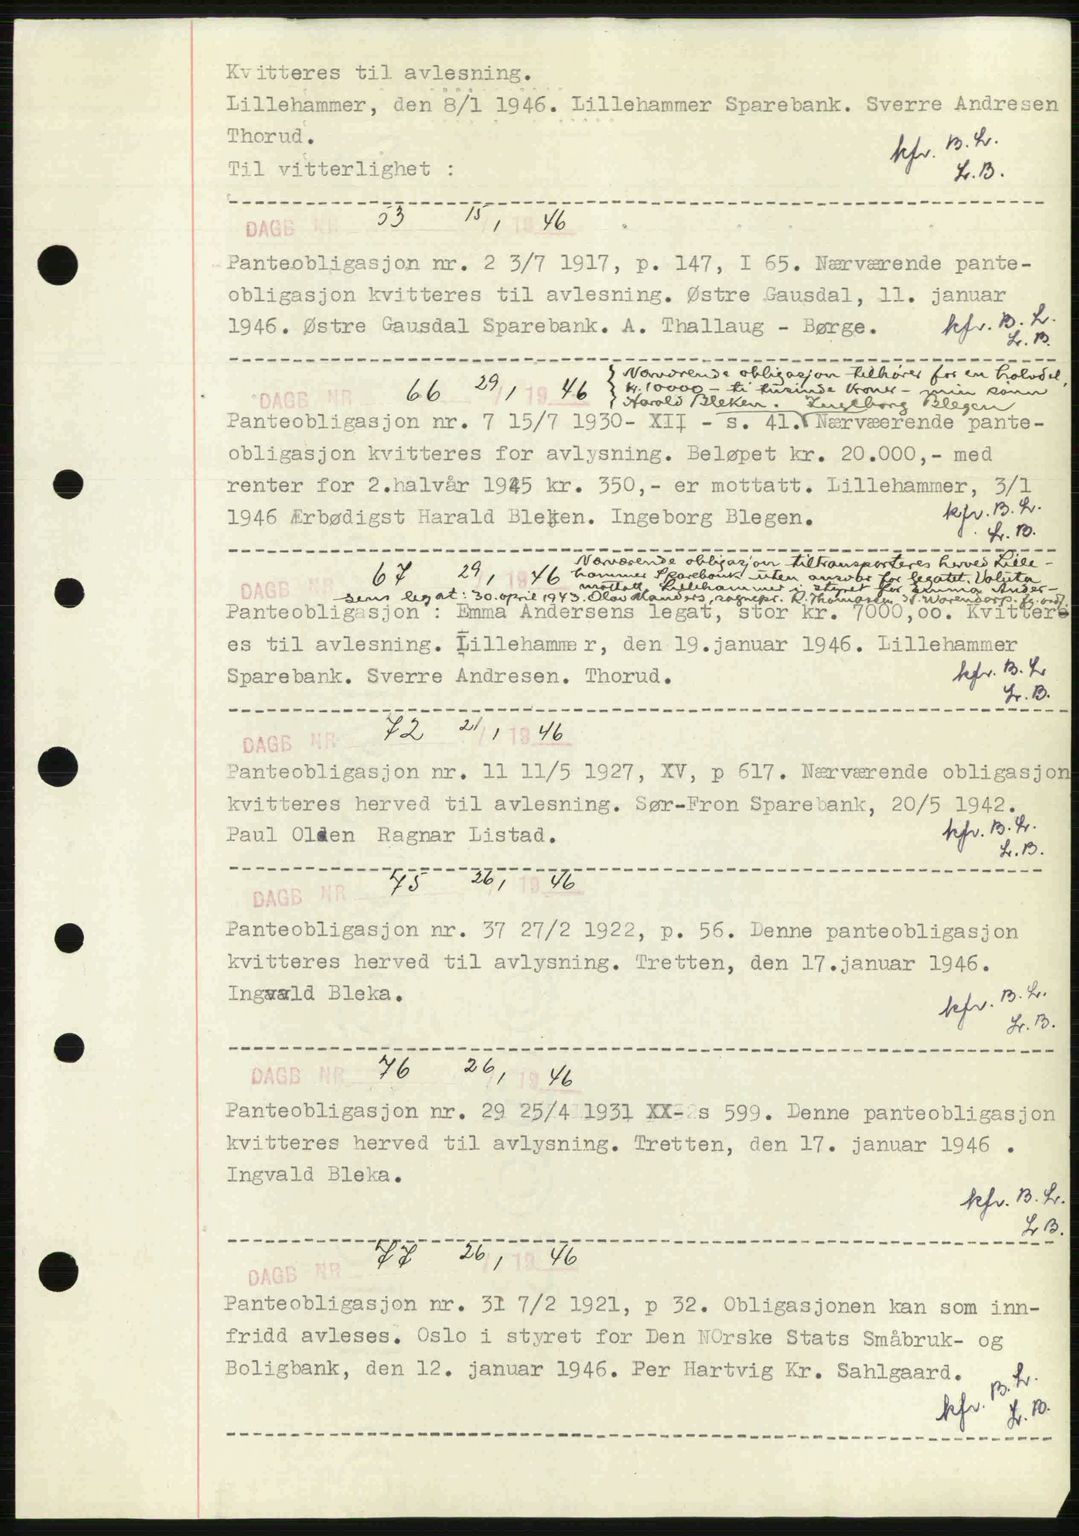 Kvitteres til avlesning.
Lillehammer, den 8/1 1946. Lillehammer Sparebank. Sverre Andresen
Thorud.
Til vitterlighet :
kfr. B. L.
L.B.
DAGB NR 53 15/1 1946
Panteobligasjon nr. 2 3/7 1917, p. 147, I 65. Nærværende pante-
obligasjon kvitteres til avlesning. Østre Gausdal, 11. januar
1946. Østre Gausdal Sparebank. A. Thallaug - Børge.
kfr. B. L.
L.B.
DAGB NR 66 29/1 1946
Nærværende obligasjon tilhører for en halvdel,
kr. 10000 - ti tusinde kroner - min sønn
Harald Bleken. Ingeborg Blegen
Panteobligasjon nr. 7 15/7 1930- XII - s. 41. Nærværende pante-
obligasjon kvitteres for avlysning. Beløpet kr. 20.000,- med
renter for 2.halvår 1945 kr. 350,- er mottatt. Lillehammer, 3/1
1946 Ærbødigst Harald Bleken. Ingeborg Blegen.
kfr. B. L.
L.B.
DAGB NR 67 29/1 1946
Nærværende obligasjon tiltransporteres herved Lille-
hammer Sparebank uten ansvar for legatet. Valuta
mottatt. Lillehammer i styret for Emma Ander-
sens legat: 30. april 1943. Olav Mandors, sogneprest. R. Thomassen
Panteobligasjon : Emma Andersens legat, stor kr. 7000,oo. Kvitter
es til avlesning. Lillehammer, den 19.januar 1946. Lillehammer
Sparebank. Sverre Andresen. Thorud.
kfr. B. L
L.B.
DAGB NR 72 21/1 1946
Panteobligasjon nr. 11 11/5 1927, XV, p 617. Nærværende obligasjon
kvitteres herved til avlesning. Sør-Fron Sparebank, 20/5 1942.
Paul Olden Ragnar Listad.
kfr. B. L.
L.B.
DAGB NR 75 26/1 1946
Panteobligasjon nr. 37 27/2 1922, p. 56. Denne panteobligasjon
kvitteres herved til avlysning. Tretten, den 17.januar 1946.
Ingvald Bleka.
kfr. B. L.
L.B.
DAGB NR 76 26/1 1946
Panteobligasjon nr. 29 25/4 1931 XX- s 599. Denne panteobligasjon
kvitteres herved til avlysning. Tretten, den 17. januar 1946 .
Ingvald Bleka.
kfr. B. L.
L.B.
DAGB NR 77 26/1 1946
Panteobligasjon nr. 31 7/2 1921, p 32. Obligasjonen kan som inn-
fridd avleses. Oslo i styret for Den NOrske Stats Småbruk- og
Boligbank, den 12. januar 1946. Per Hartvig Kr. Sahlgaard.
kfr. B. L.
L.B.